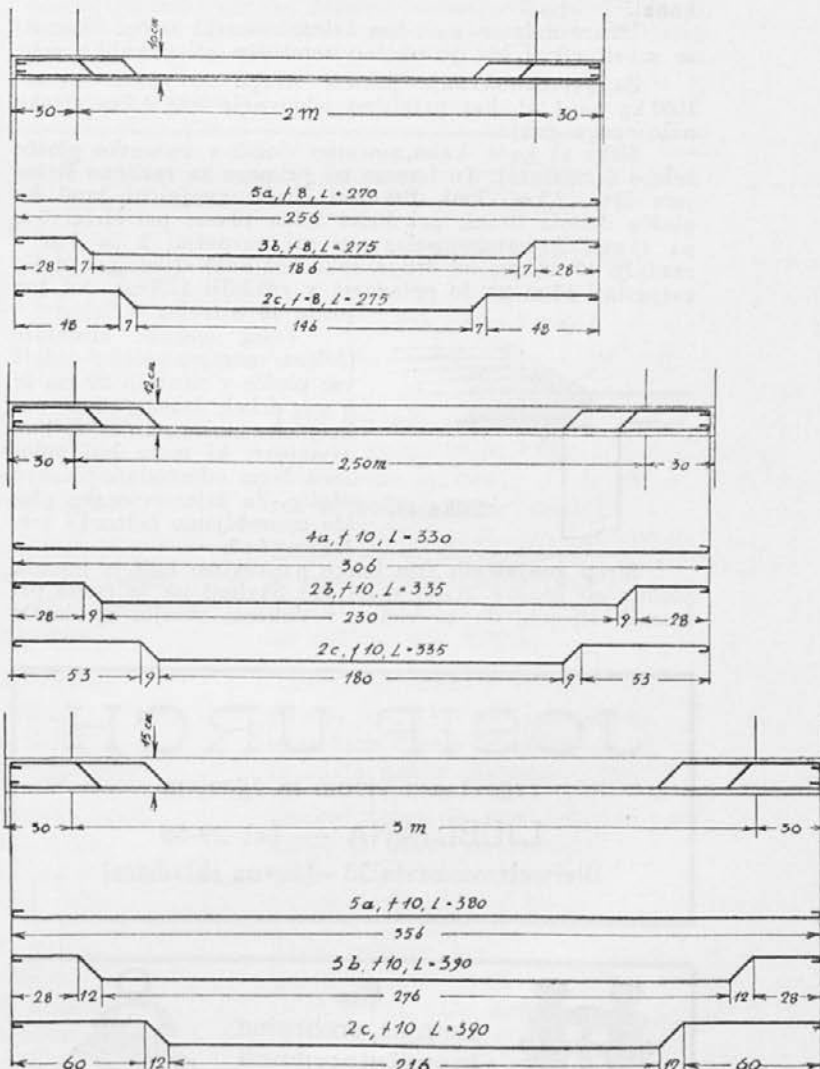 10 cm
30 2 m 30
5a, f 8, L = 270
256
3b, f 8, L = 275
28 7 186 7 28
2c, f = 8, L = 275
48 7 146 7 48
12 cm
30 2,50 m 30
4a, f 10, L = 330
306
2b, f 10, L = 335
28 9 230 9 28
2c, f 10, L = 335
53 9 180 9 53
15 cm
30 3 m 30
5a, f 10, L = 380
356
3b, f 10, L = 390
28 12 276 12 28
2c, f 10 L = 390
60 12 216 12 60